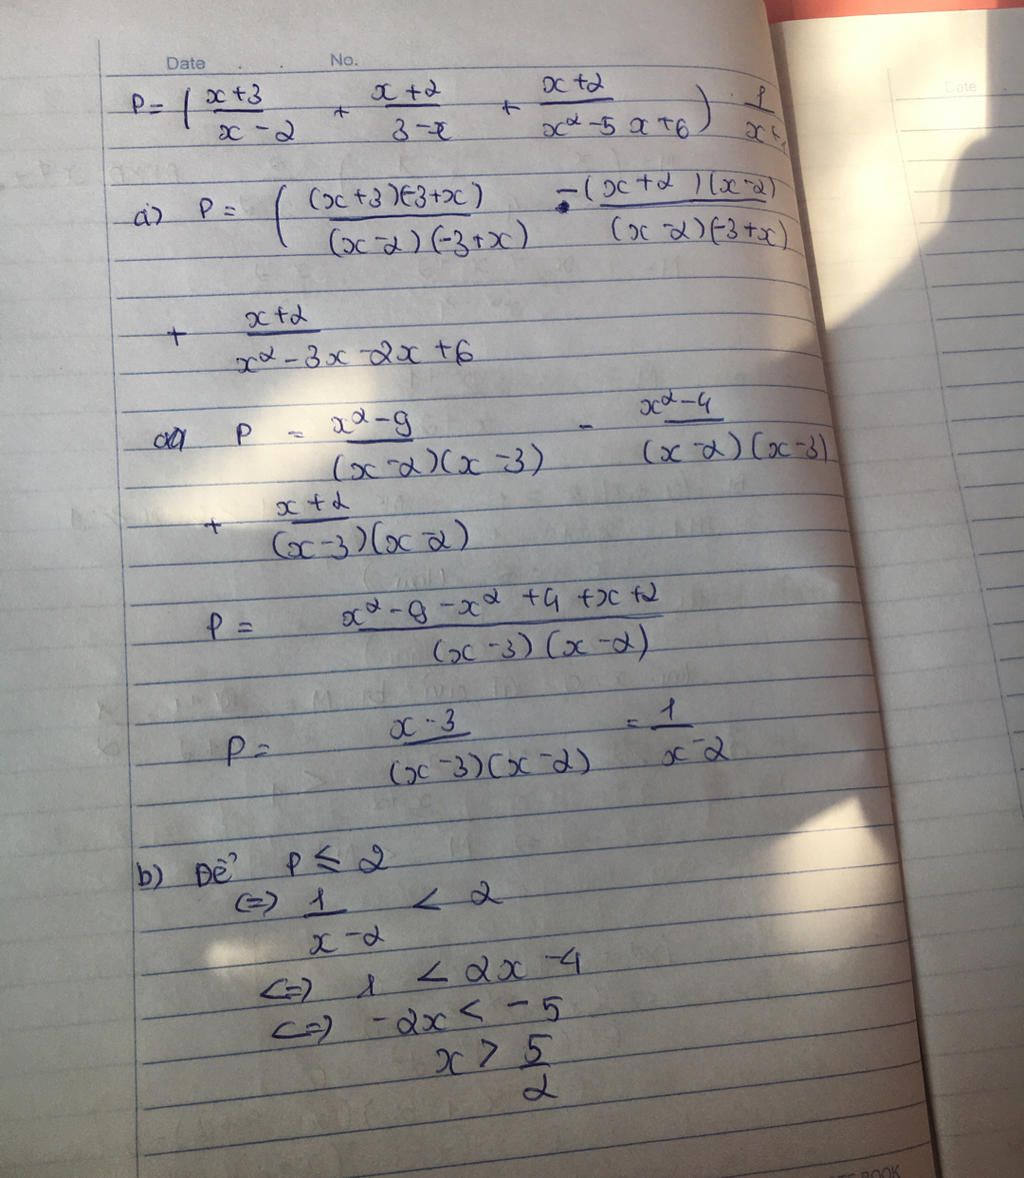 Date . . No.
P = ( x+3 / x-2 + x+2 / 3-x + x+2 / x²-5x+6 ) . 1 / x+1
a) P = ( (x+3)(-3+x) / (x-2)(-3+x) - (x+2)(x-2) / (x-2)(-3+x)
+ x+2 / x²-3x-2x+6
P = x²-9 / (x-2)(x-3) - x²-4 / (x-2)(x-3)
+ x+2 / (x-3)(x-2)
P = x²-9-x²+4+x+2 / (x-3)(x-2)
P = x-3 / (x-3)(x-2) = 1 / x-2
b) Để P ≤ 2
<=> 1 / x-2 < 2
<=> 1 < 2x-4
<=> -2x < -5
x > 5 / 2
Date
BOOK